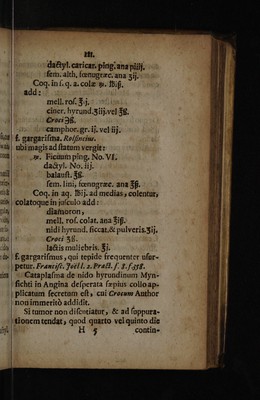 121.
dactyl. caricar. ping. ana piiij.
sem. alth, fœnugræc. ana ʒij.
Coq. in s. q. a. colæ
add:
mell. ros. ℥j.
ciner. hyrund. ʒiij. vel ℥ß.
Croci ℈ß.
camphor. gr. ij. vel iij.
f. gargarisma. Rolfincius.
ubi magis ad statum vergit:
Ficuum ping. No. VI.
dactyl. No. iij.
balaust. ℥ß.
sem. lini, fœnugræc. ana ℥ß.
Coq. in aq. ad medias, colentur,
colatoque in jusculo add:
diamoron,
mell. ros. colat. ana ℥iß.
nidi hyrund. siccat. & pulveris. ʒij.
Croci ʒß.
lactis muliebris. ℥i.
f. gargarismus, qui tepide frequenter usur-
petur. Francisc. Joëll. 2. Pract. s. 1. f. 458.
Cataplasma de nido hyrundinum Myn-
sichti in Angina desperata sæpius collo ap-
plicatum secretum est, cui Crocum Author
non immeritò addidit.
Si tumor non discutiatur, & ad suppura-
tionem tendat, quod quarto vel quinto die
H 5 contin-